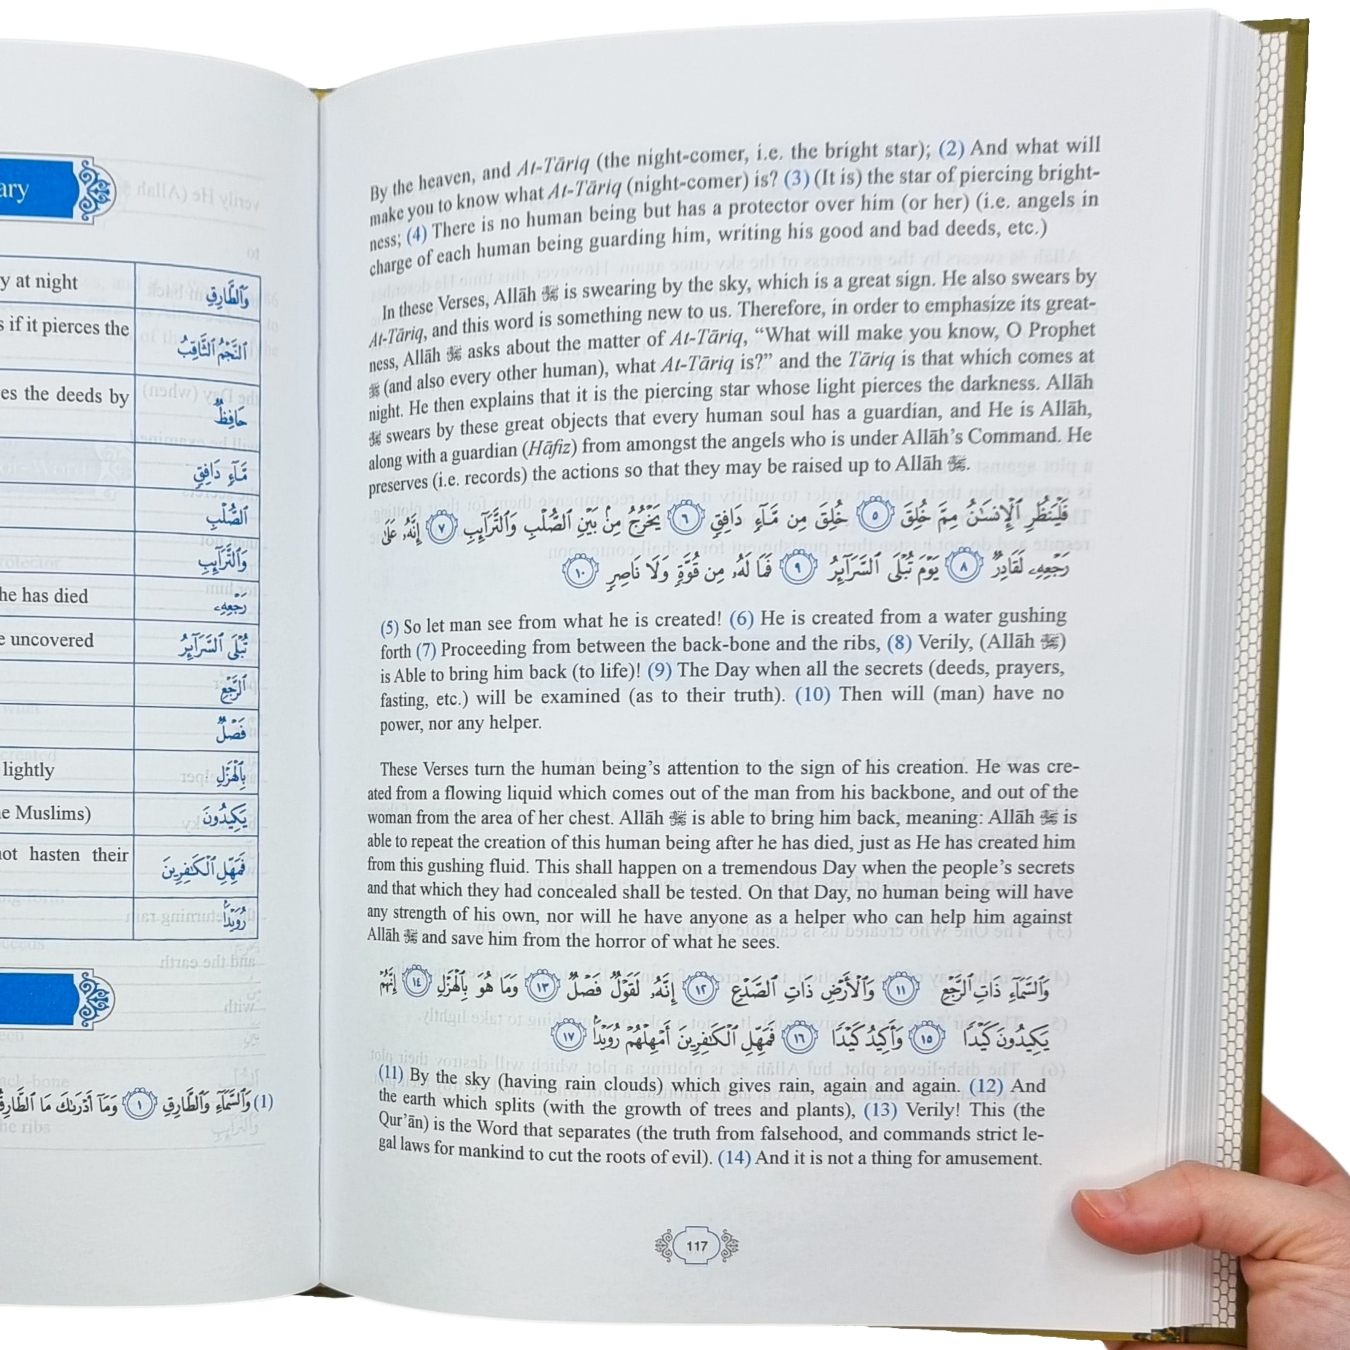 ary
y at night
وَٱلطَّارِقِ
s if it pierces the
ٱلنَّجْمُ ٱلثَّاقِبُ
es the deeds by
حَافِظٌ
مَّآءٍ دَافِقٍ
ٱلصُّلْبِ
وَٱلتَّرَآئِبِ
he has died
رَجْعِهِۦ
e uncovered
تُبْلَى ٱلسَّرَآئِرُ
ٱلرَّجْعِ
فَصْلٌ
lightly
بِٱلْهَزْلِ
e Muslims)
يَكِيدُونَ
not hasten their
فَمَهِّلِ ٱلْكَٰفِرِينَ
رُوَيْدًۢا
(1) وَٱلسَّمَآءِ وَٱلطَّارِقِ ١ وَمَآ أَدْرَىٰكَ مَا ٱلطَّارِقُ
By the heaven, and At-Tāriq (the night-comer, i.e. the bright star); (2) And what will
make you to know what At-Tāriq (night-comer) is? (3) (It is) the star of piercing bright-
ness; (4) There is no human being but has a protector over him (or her) (i.e. angels in
charge of each human being guarding him, writing his good and bad deeds, etc.)
In these Verses, Allāh ﷻ is swearing by the sky, which is a great sign. He also swears by
At-Tāriq, and this word is something new to us. Therefore, in order to emphasize its great-
ness, Allāh ﷻ asks about the matter of At-Tāriq, “What will make you know, O Prophet
ﷺ (and also every other human), what At-Tāriq is?” and the Tāriq is that which comes at
night. He then explains that it is the piercing star whose light pierces the darkness. Allāh
ﷻ swears by these great objects that every human soul has a guardian, and He is Allāh,
along with a guardian (Hāfiz) from amongst the angels who is under Allāh’s Command. He
preserves (i.e. records) the actions so that they may be raised up to Allāh ﷻ.
فَلْيَنظُرِ ٱلْإِنسَٰنُ مِمَّ خُلِقَ ٥ خُلِقَ مِن مَّآءٍ دَافِقٍ ٦ يَخْرُجُ مِنۢ بَيْنِ ٱلصُّلْبِ وَٱلتَّرَآئِبِ ٧ إِنَّهُۥ عَلَىٰ
رَجْعِهِۦ لَقَادِرٌ ٨ يَوْمَ تُبْلَى ٱلسَّرَآئِرُ ٩ فَمَا لَهُۥ مِن قُوَّةٍ وَلَا نَاصِرٍ ١٠
(5) So let man see from what he is created! (6) He is created from a water gushing
forth (7) Proceeding from between the back-bone and the ribs, (8) Verily, (Allāh ﷻ)
is Able to bring him back (to life)! (9) The Day when all the secrets (deeds, prayers,
fasting, etc.) will be examined (as to their truth). (10) Then will (man) have no
power, nor any helper.
These Verses turn the human being’s attention to the sign of his creation. He was cre-
ated from a flowing liquid which comes out of the man from his backbone, and out of the
woman from the area of her chest. Allāh ﷻ is able to bring him back, meaning: Allāh ﷻ is
able to repeat the creation of this human being after he has died, just as He has created him
from this gushing fluid. This shall happen on a tremendous Day when the people’s secrets
and that which they had concealed shall be tested. On that Day, no human being will have
any strength of his own, nor will he have anyone as a helper who can help him against
Allāh ﷻ and save him from the horror of what he sees.
وَٱلسَّمَآءِ ذَاتِ ٱلرَّجْعِ ١١ وَٱلْأَرْضِ ذَاتِ ٱلصَّدْعِ ١٢ إِنَّهُۥ لَقَوْلٌ فَصْلٌ ١٣ وَمَا هُوَ بِٱلْهَزْلِ ١٤ إِنَّهُمْ
يَكِيدُونَ كَيْدًا ١٥ وَأَكِيدُ كَيْدًا ١٦ فَمَهِّلِ ٱلْكَٰفِرِينَ أَمْهِلْهُمْ رُوَيْدًۢا ١٧
(11) By the sky (having rain clouds) which gives rain, again and again. (12) And
the earth which splits (with the growth of trees and plants), (13) Verily! This (the
Qur’ān) is the Word that separates (the truth from falsehood, and commands strict le-
gal laws for mankind to cut the roots of evil). (14) And it is not a thing for amusement.
117